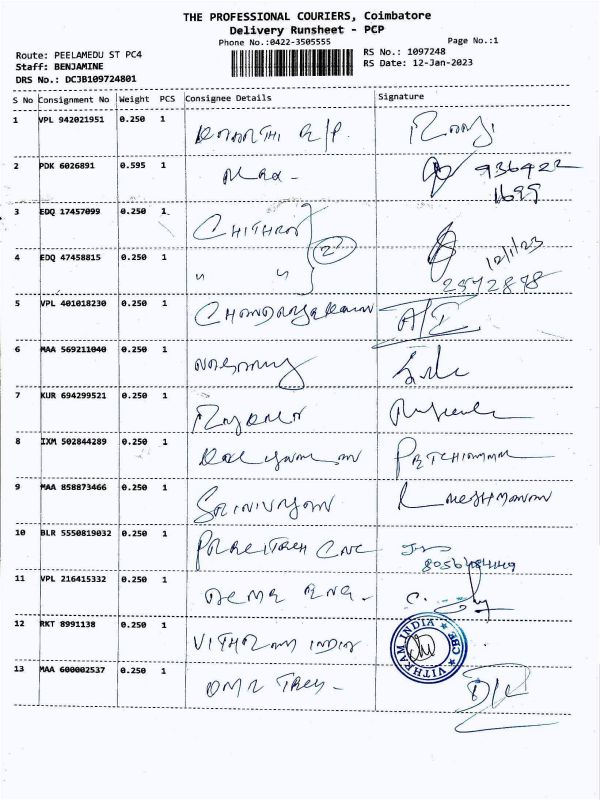 THE PROFESSIONAL COURIERS, Coimbatore
Delivery Runsheet - PCP
Phone No.:0422-3505555
Page No.:1
Route: PEELAMEDU ST PC4
Staff: BENJAMINE
DRS No.: DCJB109724801
RS No.: 1097248
RS Date: 12-Jan-2023
S No Consignment No Weight PCS Consignee Details Signature
1 VPL 942021951 0.250 1
2 PDK 6026891 0.595 1 Max - 936422
1699
3 EDQ 17457099 0.250 1 CHITHRA
2
4 EDQ 47458815 0.250 1 " " 12/1/23
2572878
5 VPL 401018230 0.250 1
6 MAA 569211040 0.250 1
7 KUR 694299521 0.250 1
8 IXM 502844289 0.250 1
9 MAA 858873466 0.250 1 SRINIVASAN LAKSHMANAN
10 BLR 5550819032 0.250 1 CNC
8056484149
11 VPL 216415332 0.250 1 ACME ENG - C.
12 RKT 8991138 0.250 1 VITHRAM INDIA
VITHRAM INDIA CBE
13 MAA 600002537 0.250 1